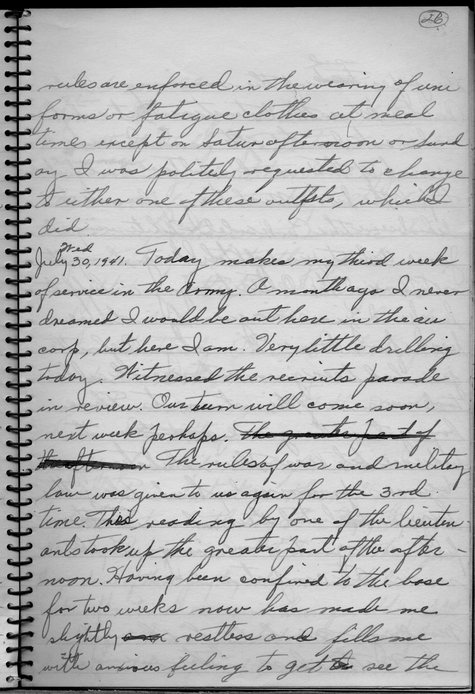 26
rules are enforced in the wearing of uni
forms or fatigue clothes at meal
times except on Satur afternoon or Sund
ay I was politely requested to change
to either one of these outfits, which I
did.
Wed
July 30, 1941. Today makes my third week
of service in the Army. A month ago I never
dreamed I would be out here in the air
corp, but here I am. Very little drilling
today. Witnessed the recruits parade
in review. Our turn will come soon,
next week perhaps. The greater part of
the afternoon The rules of war and military
law was given to us again for the 3rd
time. This reading by one of the lieuten
ants took up the greater part of the after-
noon. Having been confined to the base
for two weeks now has made me
slightly restless and fills me
with anxious feeling to get to see the